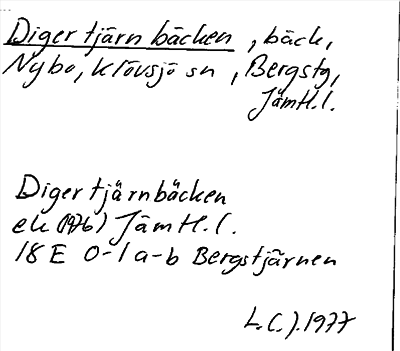 Digertjärnbäcken, bäck,
Nybo, Klövsjö sn, Bergstg,
Jämtl.l.
Digertjärnbäcken
ek (1976) Jämtl.l.
18 E 0-1 a-b Bergstjärnen
L.C.J. 1977